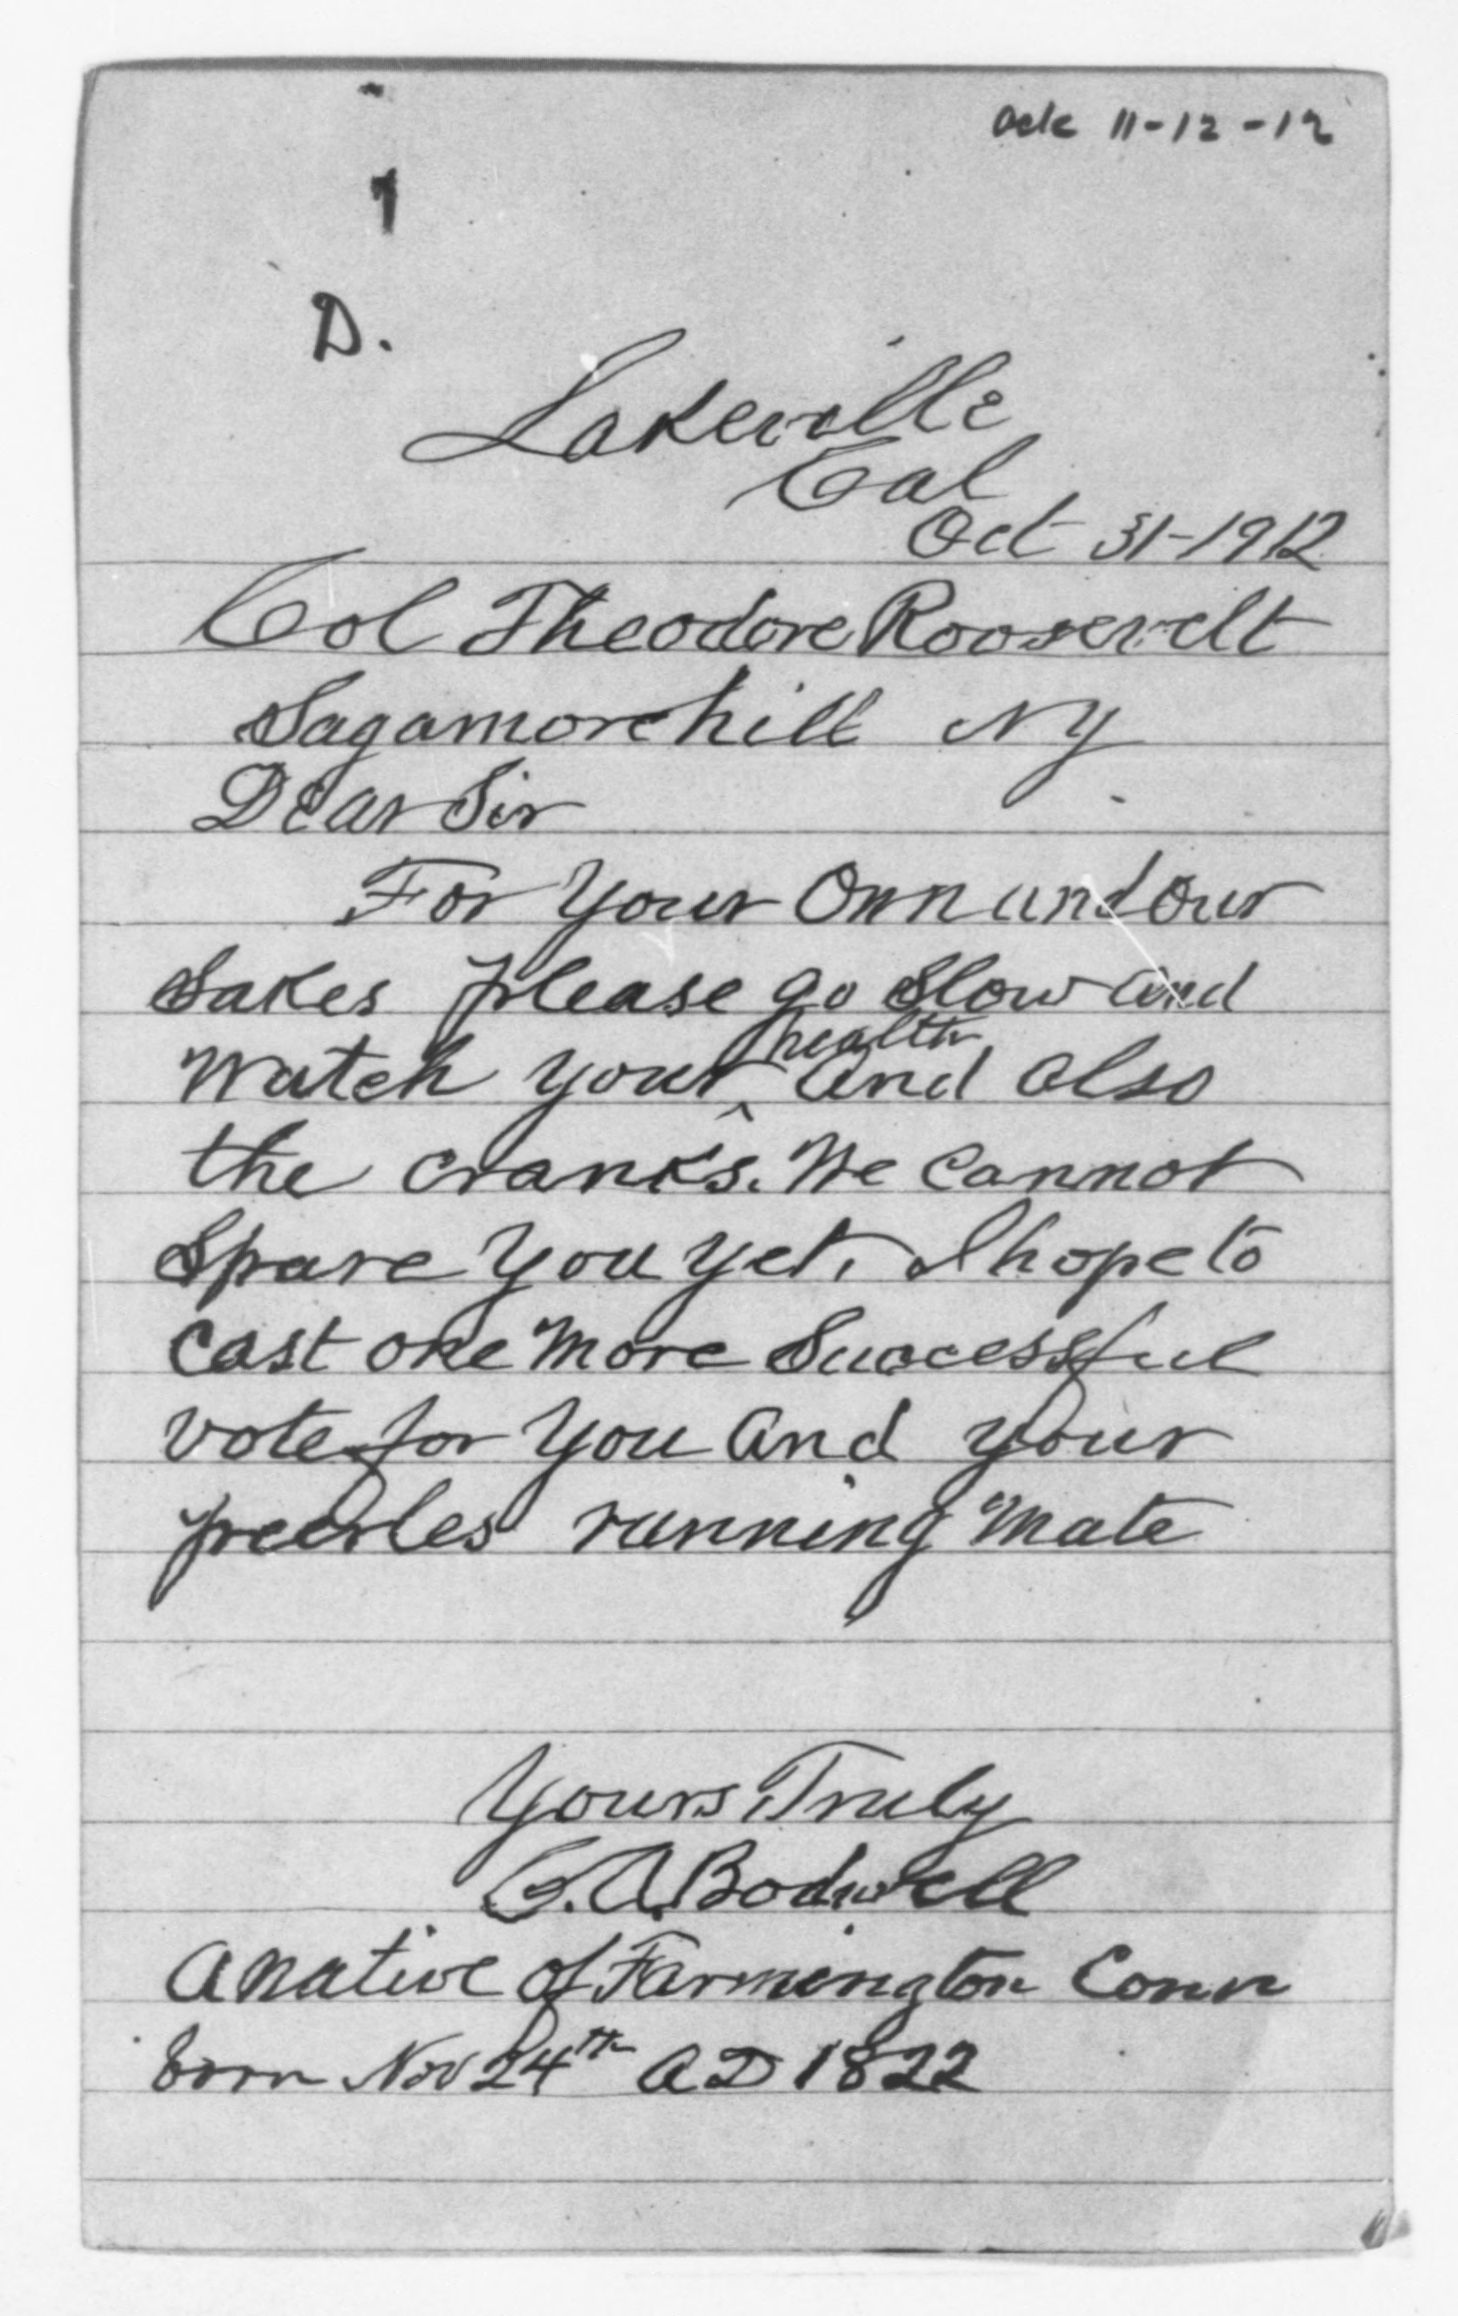 ack 11-12-12
1
D.
Lakeville
Cal
Oct 31-1912
Col Theodore Roosevelt
Sagamorehill NY
Dear Sir
For Your Own and Our
sakes please go slow and
Watch your health and also
the cranks. We cannot
spare you yet, I hope to
cast one more successful
vote for you and your
peerles running mate
Yours Truly
C. A. Bodwell
A native of Farmington Conn
born Nov 24th AD 1822